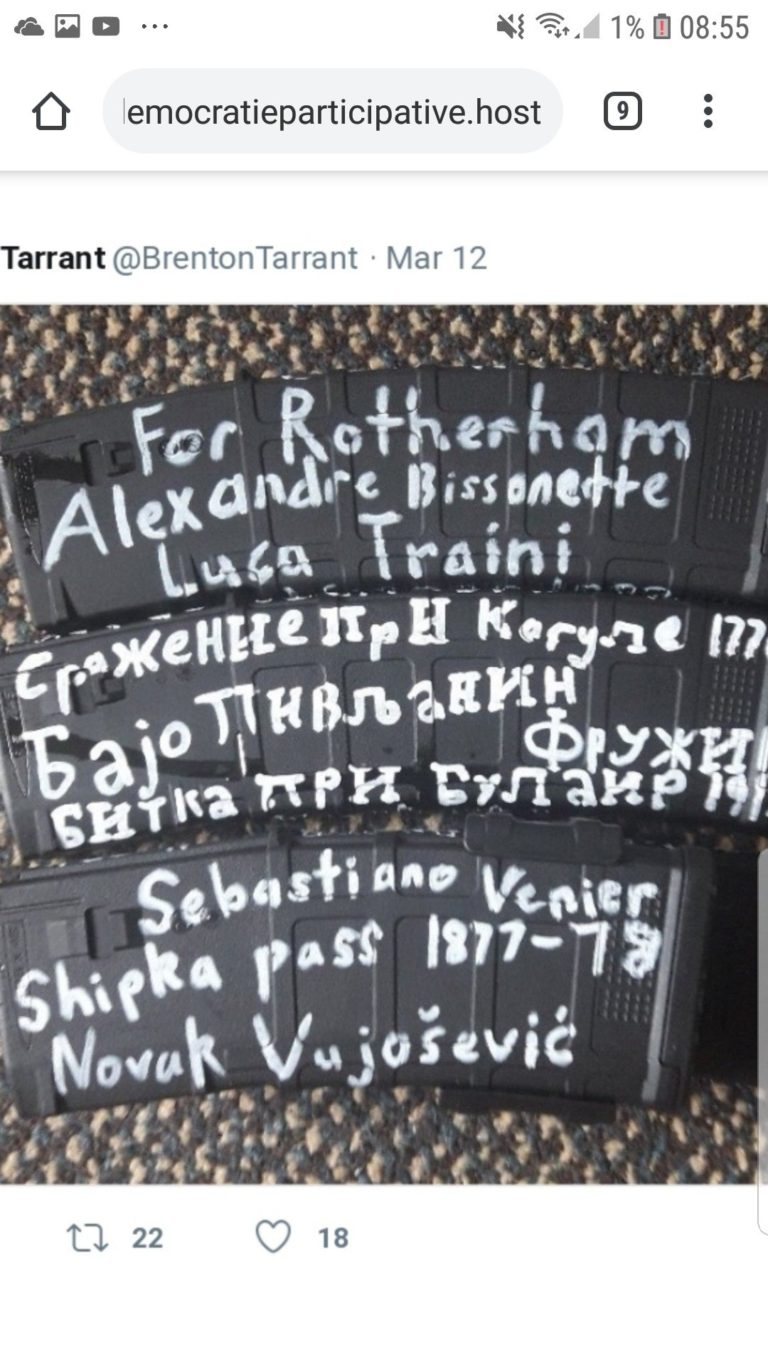 1% 08:55
emocratieparticipative.host
9
Tarrant @BrentonTarrant · Mar 12
For Rotherham
Alexandre Bissonette
Luca Traini
Сражение при Кагуле 177
Бајо Пивљанин
Фружи
Битка при Булаир 191
Sebastiano Venier
Shipka pass 1877-78
Novak Vujošević
22 18